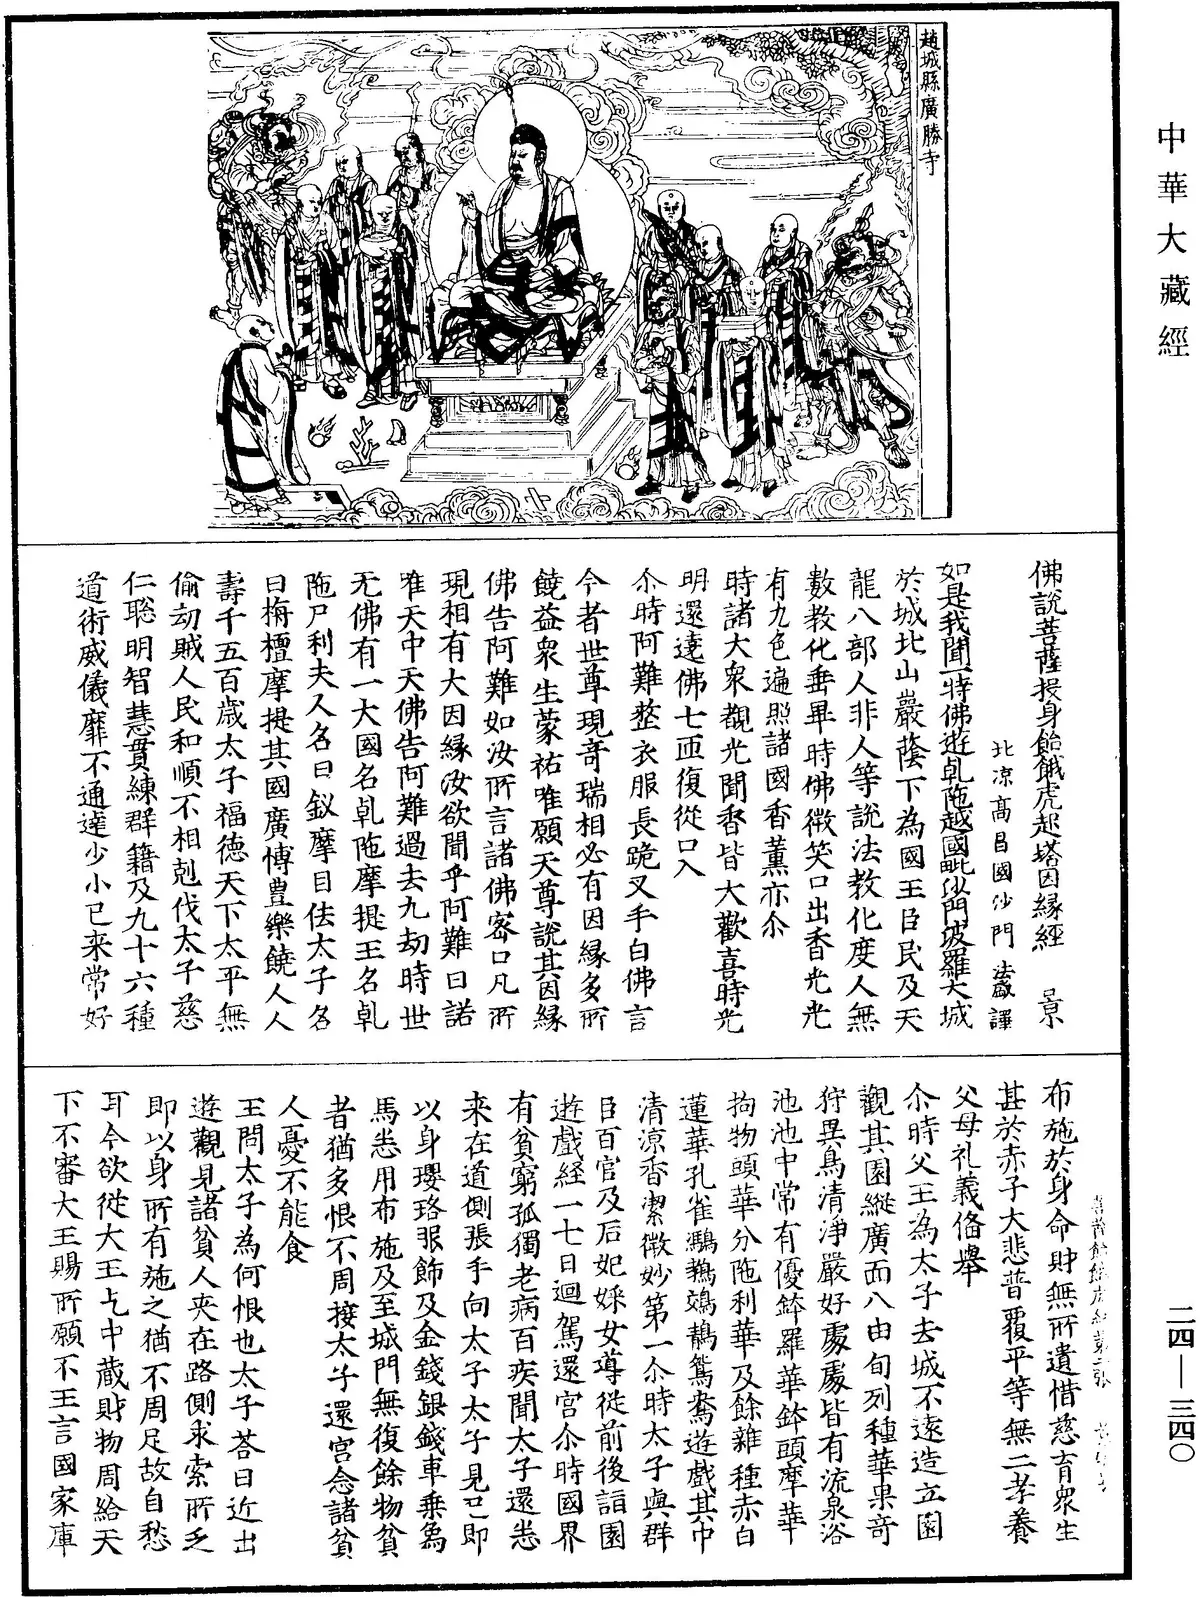 中華大藏經
趙城縣廣勝寺
佛說菩薩投身飴餓虎起塔因緣經　景
北涼高昌國沙門法盛譯
如是我聞一時佛遊乹陁越國毗沙門波羅大城
於城北山巖蔭下為國王臣民及天
龍八部人非人等說法教化度人無
數教化垂畢時佛微笑口出香光光
有九色遍照諸國香薰亦尒
時諸大衆覩光聞香皆大歡喜時光
明還遶佛七迊復從口入
尒時阿難整衣服長跪叉手白佛言
今者世尊現奇瑞相必有因緣多所
饒益衆生蒙祐唯願天尊說其因緣
佛告阿難如汝所言諸佛密口凡所
現相有大因緣汝欲聞乎阿難曰諾
唯天中天佛告阿難過去九劫時世
无佛有一大國名乹陁摩提王名乹
陁尸利夫人名曰釵摩目佉太子名
曰栴檀摩提其國廣愽豊樂饒人人
壽千五百歲太子福德天下太平無
偷劫賊人民和順不相剋伐太子慈
仁聡明智慧貫練群籍及九十六種
道術威儀靡不通達少小已来常好
布施於身命財無所遺惜慈育衆生
甚於赤子大悲普覆平等無二孝養
父母礼義俻舉
尒時父王為太子去城不遠造立園
觀其園縱廣面八由旬列種華果奇
狩異鳥清淨嚴好處處皆有流泉浴
池池中常有優鉢羅華鉢頭摩華
拘物頭華分陁利華及餘雜種赤白
蓮華孔雀鸚鵡鵁鶄鴛鴦遊戲其中
清凉香潔微妙第一尒時太子與群
臣百官及后妃婇女導從前後詣園
遊戲経一七日迴駕還宮尒時國界
有貧窮孤獨老病百疾聞太子還悉
来在道側張手向太子太子見已即
以身瓔珞服飾及金錢銀錢車乗烏
馬悉用布施及至城門無復餘物貧
者猶多恨不周接太子還宮念諸貧
人憂不能食
王問太子為何恨也太子荅曰近出
遊觀見諸貧人夾在路側求索所乏
即以身所有施之猶不周足故自愁
耳今欲従大王乞中藏財物周給天
下不審大王賜所願不王言國家庫
二四—三四〇